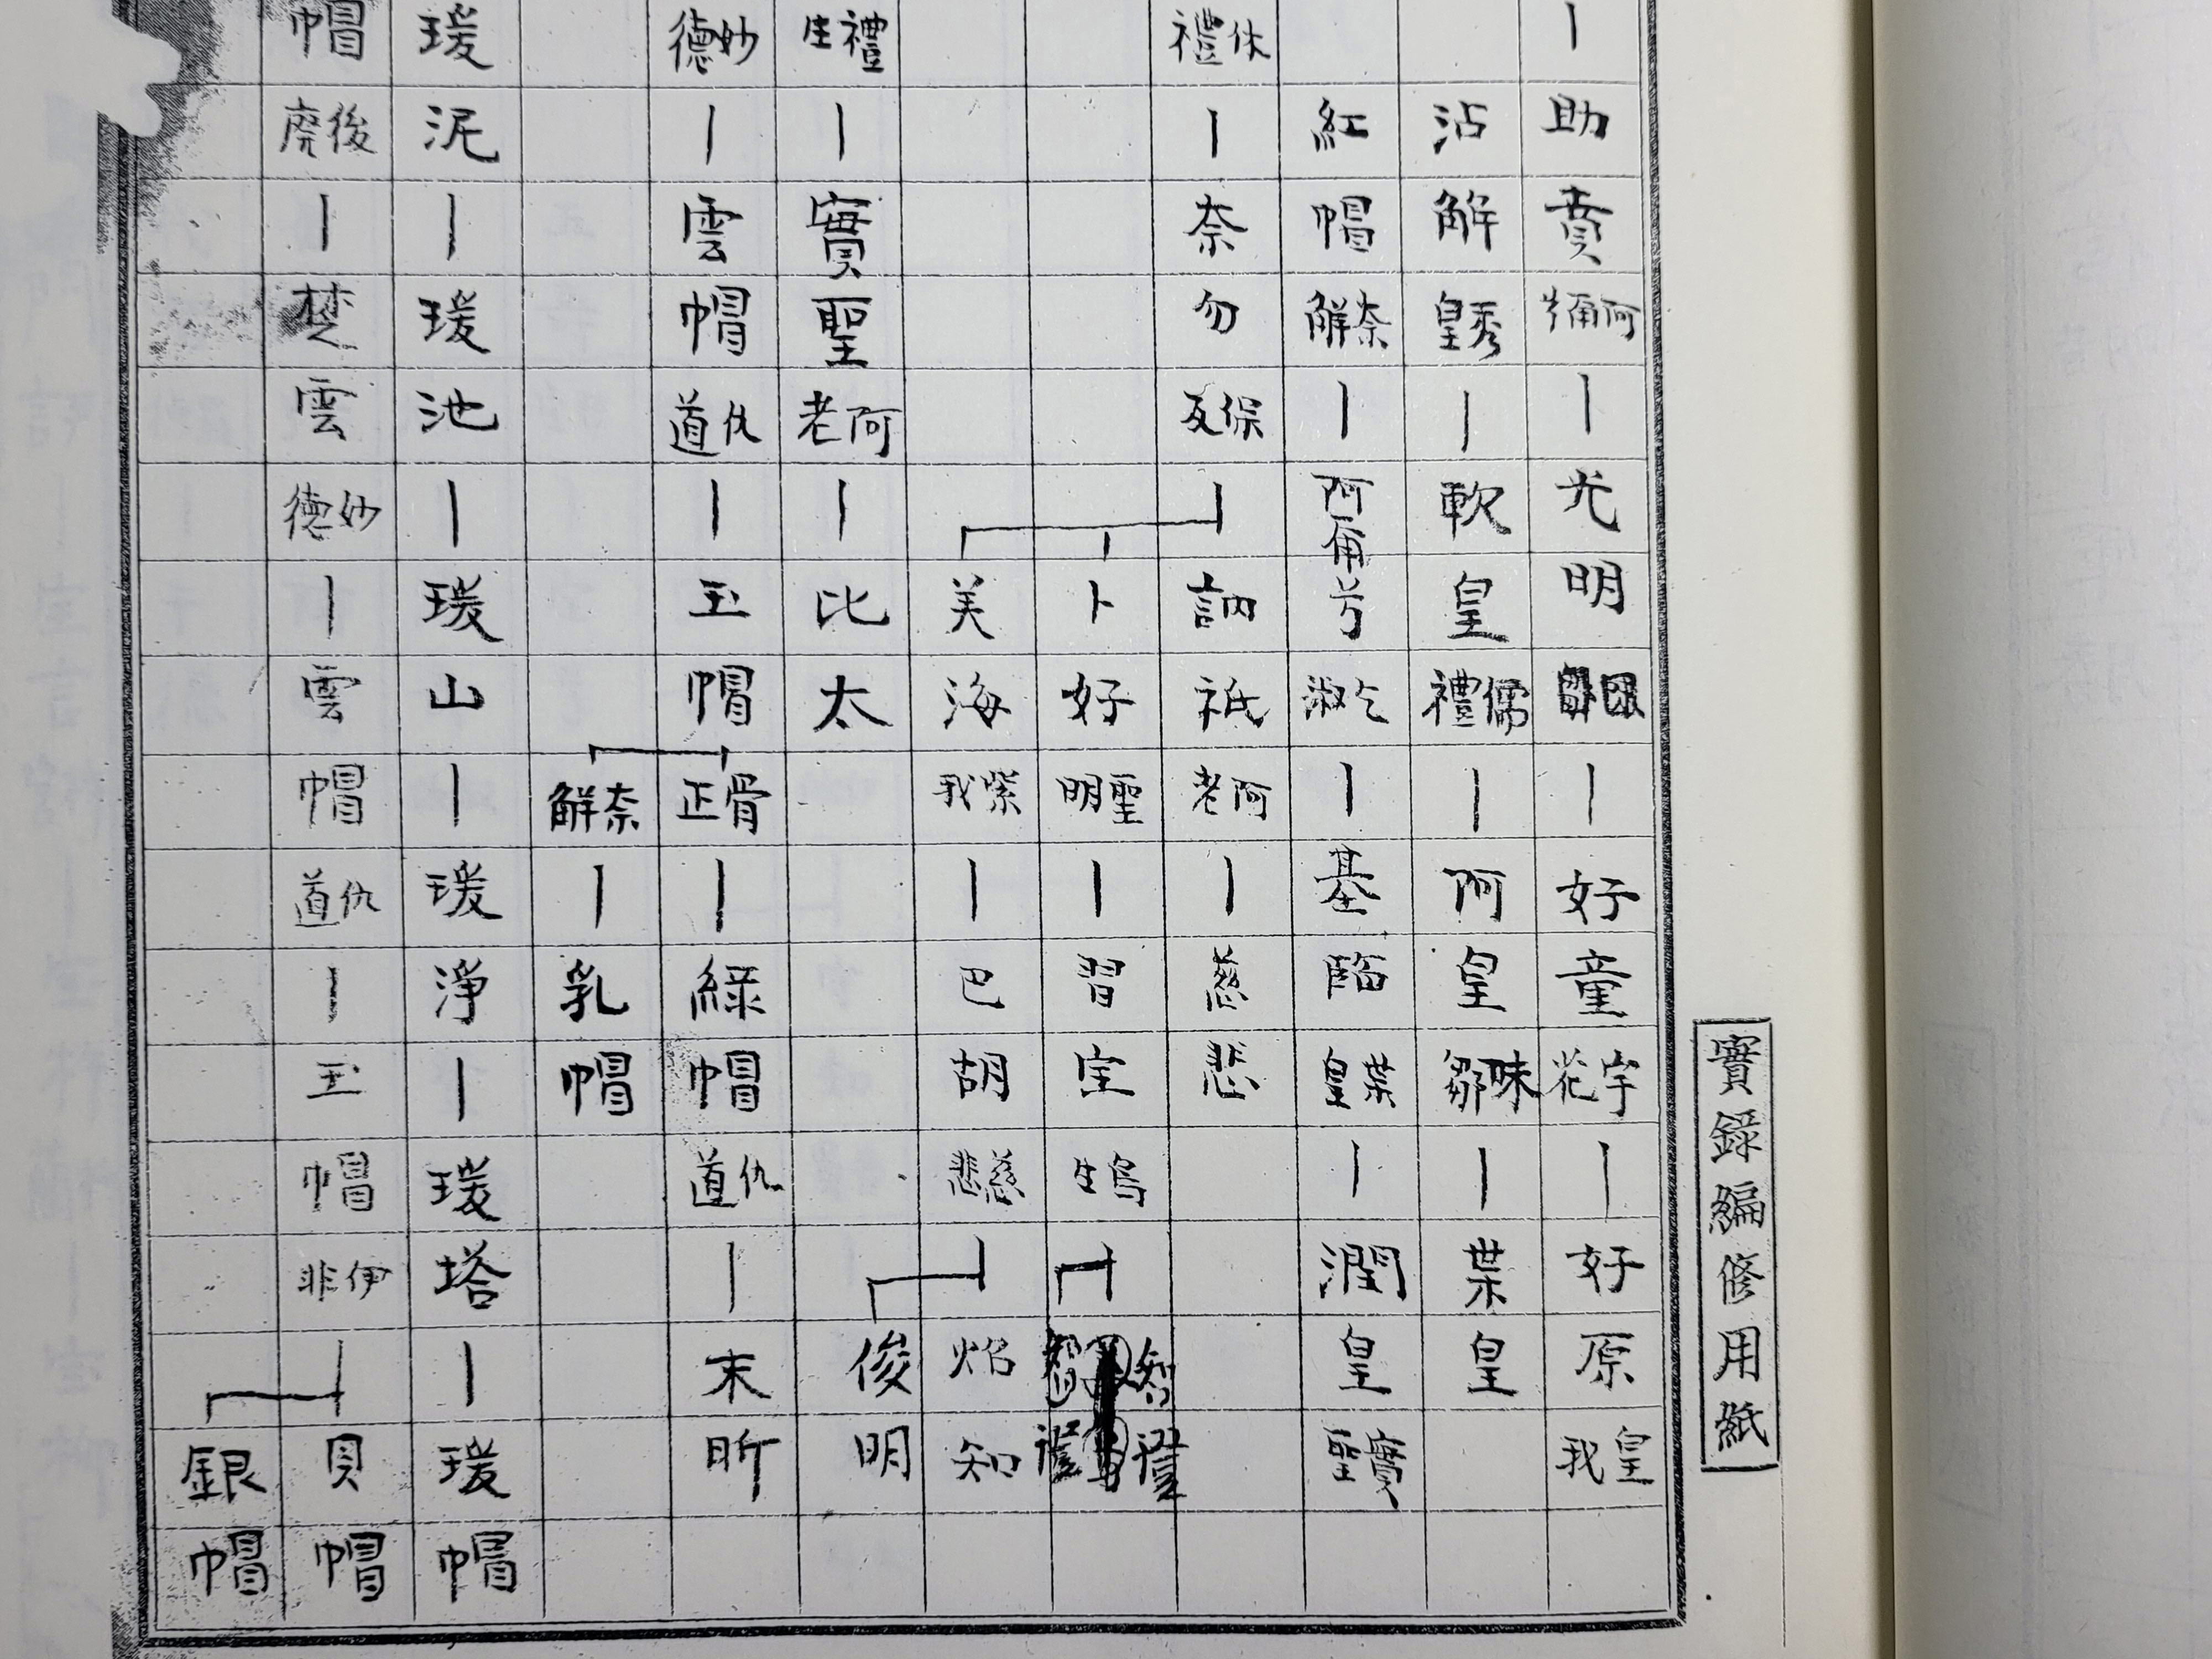 實錄編修用紙
｜助賁｜光明｜好童宇花｜好原皇我
沾解秀皇｜軟皇儒禮｜阿皇味鄒｜葉皇
紅帽奈解｜阿角兮｜基臨葉皇｜潤皇實聖
休禮｜奈勿保反｜訥祇阿老｜慈悲
卜好聖明｜習宝
美海紫我｜巴胡慈悲｜焰知
俊明
禮生｜實聖阿老｜比太
妙德｜雲帽仇道｜玉帽骨正｜綠帽仇道｜末昕
奈解｜乳帽
瑗泥｜瑗池｜瑗山｜瑗淨｜瑗塔｜瑗帽
帽後廃｜楚雲妙德｜雲帽仇道｜玉帽伊非｜貝帽
銀帽